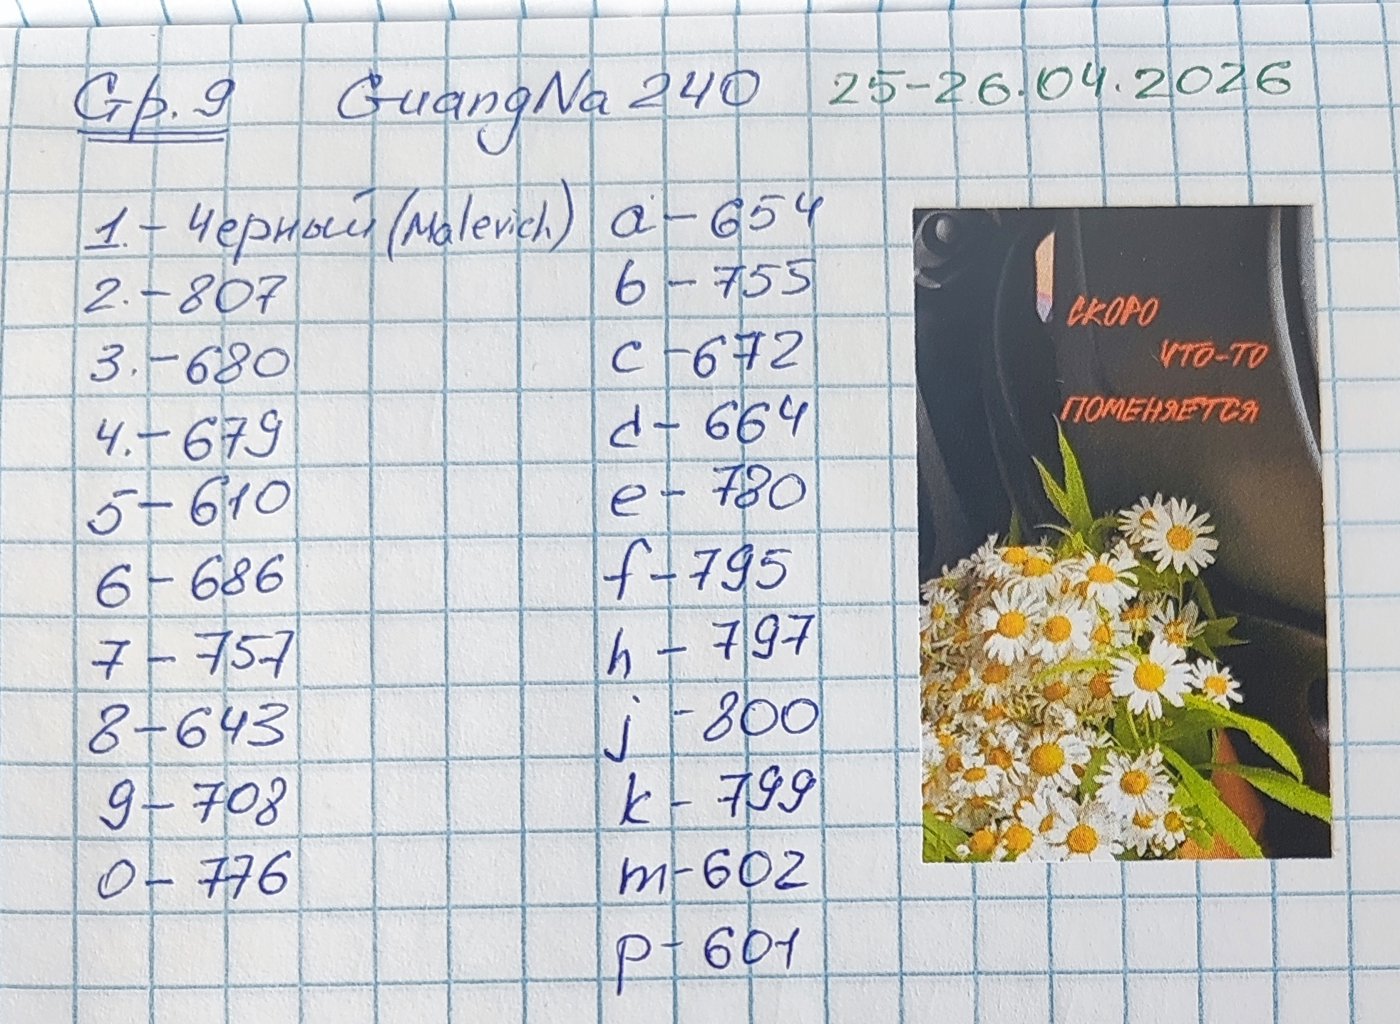 Gр.9 GuangNa 240 25-26.04.2026
1.- Черный (Malevich)
2.- 807
3.- 680
4.- 679
5 - 610
6 - 686
7 - 757
8 - 643
9 - 708
0 - 776
a - 654
b - 755
c - 672
d - 664
e - 780
f - 795
h - 797
j - 800
k - 799
m - 602
p - 601
СКОРО
ЧТО-ТО
ПОМЕНЯЕТСЯ